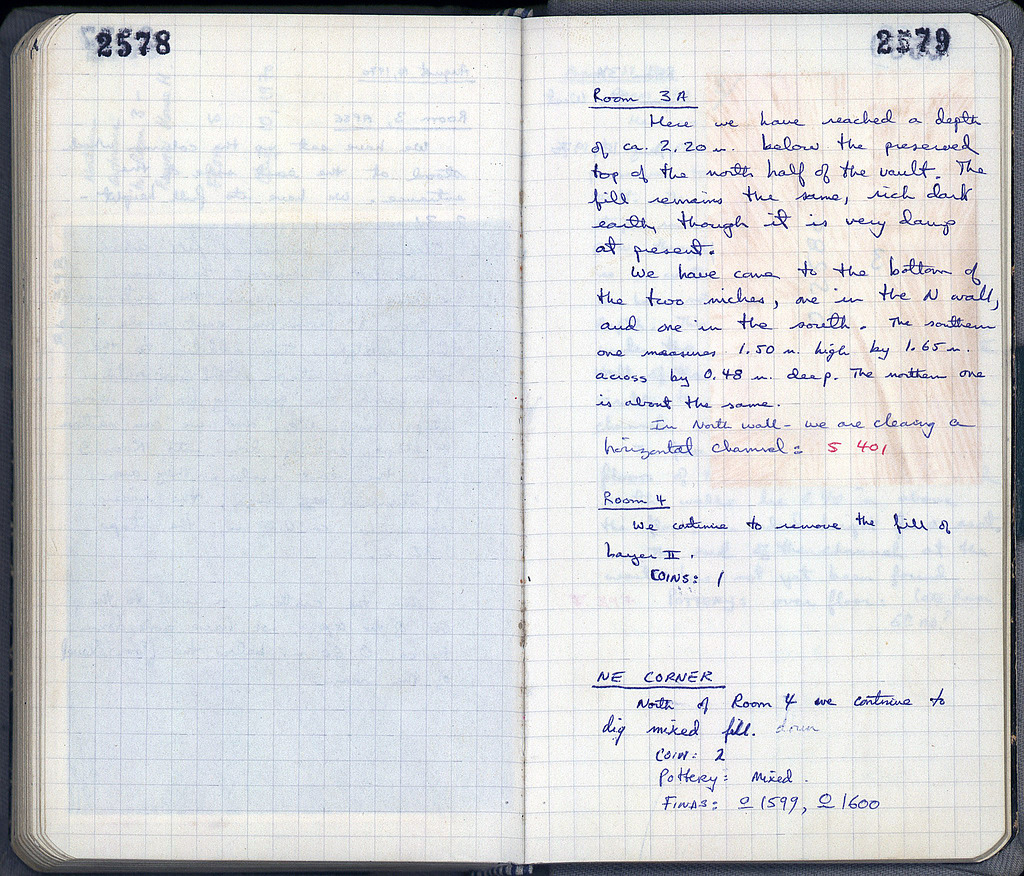 2578
2579
Room 3A
Here we have reached a depth
of ca. 2.20 m. below the preserved
top of the north half of the vault. The
fill remains the same, rich dark
earth, though it is very damp
at present.
We have come to the bottom of
the two niches, one in the N wall,
and one in the south. The southern
one measures 1.50 m. high by 1.65 m.
across by 0.48 m. deep. The northern one
is about the same.
In North wall - we are clearing a
horizontal channel: S 401
Room 4
We continue to remove the fill of
Layer II.
COINS: 1
NE CORNER
North of Room 4 we continue to
dig mixed fill. down
COIN: 2
Pottery: Mixed.
FINDS: O 1599, O 1600